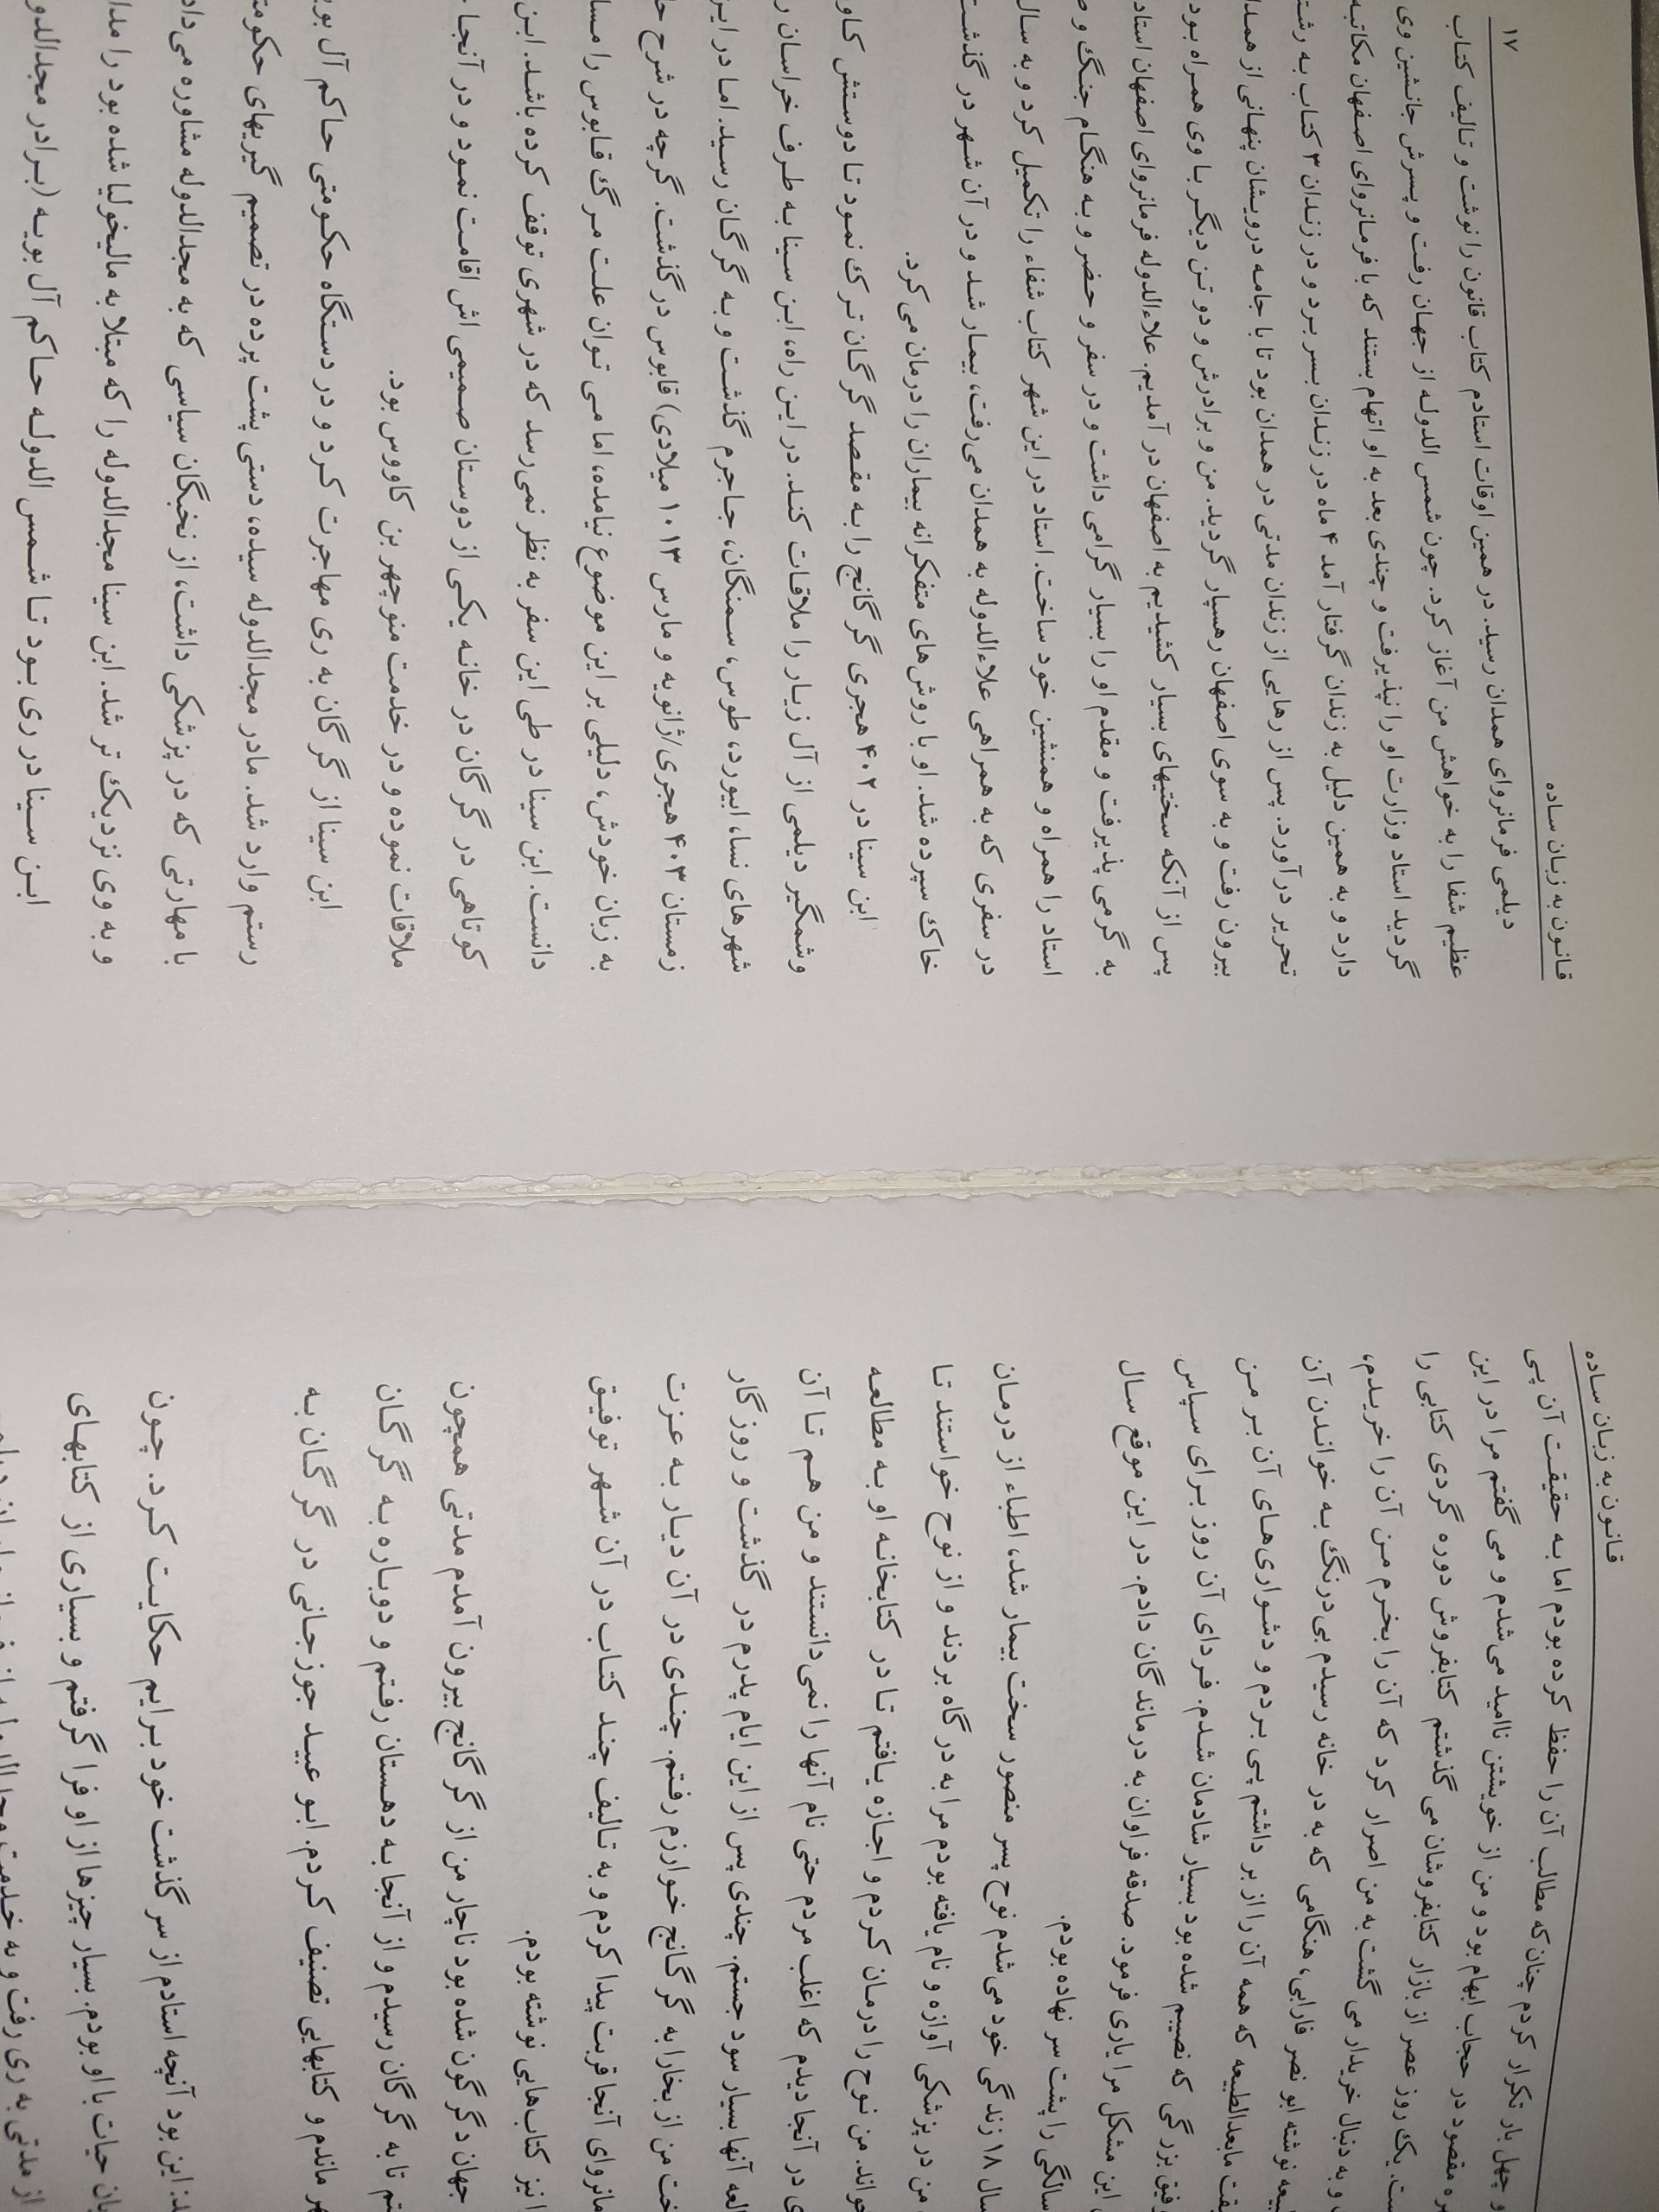 قانون به زبان ساده
و چهل بار تکرار کردم چنان که مطالب آن را حفظ کرده بودم اما به حقیقت آن پی
مقصود در حجاب ابهام بود و من از خویشتن ناامید می‌شدم و می گفتم مرا در این
یک روز عصر از بازار کتابفروشان می گذشتم کتابفروش دوره گردی کتابی را
و به دنبال خریدار می گشت به من اصرار کرد که آن را بخرم من آن را خریدم،
نوشته ابو نصر فارابی، هنگامی که به در خانه رسیدم بی‌درنگ به خواندن آن
مابعدالطبیعه که همه آن را از بر داشتم پی بردم و دشواری‌های آن بر من
بزرگی که نصیبم شده بود بسیار شادمان شدم. فردای آن روز برای سپاس
این مشکل مرا یاری فرمود. صدقه فراوان به درماندگان دادم. در این موقع سال
سالگی را پشت سر نهاده بودم.
سال ۱۸ زندگی خود می‌شدم نوح پسر منصور سخت بیمار شد، اطباء از درمان
من در پزشکی آوازه و نام یافته بودم مرا به درگاه بردند و از نوح خواستند تا
من نوح را درمان کردم و اجازه یافتم تا در کتابخانه او به مطالعه
در آنجا دیدم که اغلب مردم حتی نام آنها را نمی‌دانستند و من هم تا آن
آنها بسیار سود جستم. چندی پس از این ایام پدرم در گذشت و روزگار
من از بخارا به گرگانج خوارزم رفتم. چندی در آن دیار به عزت
آنجا قربت پیدا کردم و به تالیف چند کتاب در آن شهر توفیق
نیز کتاب‌هایی نوشته بودم.
جهان دگرگون شده بود ناچار من از گرگانج بیرون آمدم مدتی همچون
تا به گرگان رسیدم و از آنجا به دهستان رفتم و دوباره به گرگان
ماندم و کتابهایی تصنیف کردم. ابو عبید جوزجانی در گرگان به
این بود آنچه استادم از سرگذشت خود برایم حکایت کرد. چون
حیات با او بودم. بسیار چیزها از او فرا گرفتم و بسیاری از کتابهای
از مدتی به ری رفت و به خدمت
قانون به زبان ساده
۱۷
دیلمی فرمانروای همدان رسید. در همین اوقات استادم کتاب قانون را نوشت و تالیف کتاب
عظیم شفا را به خواهش من آغاز کرد. چون شمس الدوله از جهان رفت و پسرش جانشین وی
گردید استاد وزارت او را نپذیرفت و چندی بعد به او اتهام بستند که با فرمانروای اصفهان مکاتبه
دارد و به همین دلیل به زندان گرفتار آمد ۴ ماه در زندان بسر برد و در زندان ۳ کتاب به رشته
تحریر در آورد. پس از رهایی از زندان مدتی در همدان بود تا با جامه درویشان پنهانی از همدان
بیرون رفت و به سوی اصفهان رهسپار گردید. من و برادرش و دو تن دیگر با وی همراه بود
پس از آنکه سختیهای بسیار کشیدیم به اصفهان در آمدیم. علاءالدوله فرمانروای اصفهان استاد
به گرمی پذیرفت و مقدم او را بسیار گرامی داشت و در سفر و حضر و به هنگام جنگ و
استاد را همراه و همنشین خود ساخت. استاد در این شهر کتاب شفاء را تکمیل کرد و به سال
در سفری که به همراهی علاءالدوله به همدان می‌رفت، بیمار شد و در آن شهر در گذشت
خاک سپرده شد. او با روش‌های متفکرانه بیماران را درمان می کرد.
ابن سینا در ۴۰۲ هجری گرگانج را به مقصد گرگان ترک نمود تا دوستش
وشمگیر دیلمی از آل زیار را ملاقات کند. در این راه، ابن سینا به طرف خراسان
شهرهای نسا، ابیورد، طوس، سمنگان، جاجرم گذشت و به گرگان رسید. اما در این
زمستان ۴۰۳ هجری/ژانویه و مارس ۱۰۱۳ میلادی) قابوس در گذشت. گرچه در شرح
به زبان خودش، دلیلی بر این موضوع نیامده، اما می توان علت مرگ قابوس را
دانست. ابن سینا در طی این سفر به نظر نمی‌رسد که در شهری توقف کرده باشد. ابن
کوتاهی در گرگان در خانه یکی از دوستان صمیمی اش اقامت نمود و در آنجا
ملاقات نموده و در خدمت منوچهر بن کاووس بود.
ابن سینا از گرگان به ری مهاجرت کرد و در دستگاه حکومتی حاکم آل
رستم وارد شد. مادر مجدالدوله سیده، دستی پشت پرده در تصمیم گیریهای
با مهارتی که در پزشکی داشت، از نخبگان سیاسی که به مجدالدوله مشاوره می
و به وی نزدیک تر شد. ابن سینا مجدالدوله را که مبتلا به مالیخولیا شده بود را
ابن سینا در ری بود تا شمس الدوله حاکم آل بویه (برادر